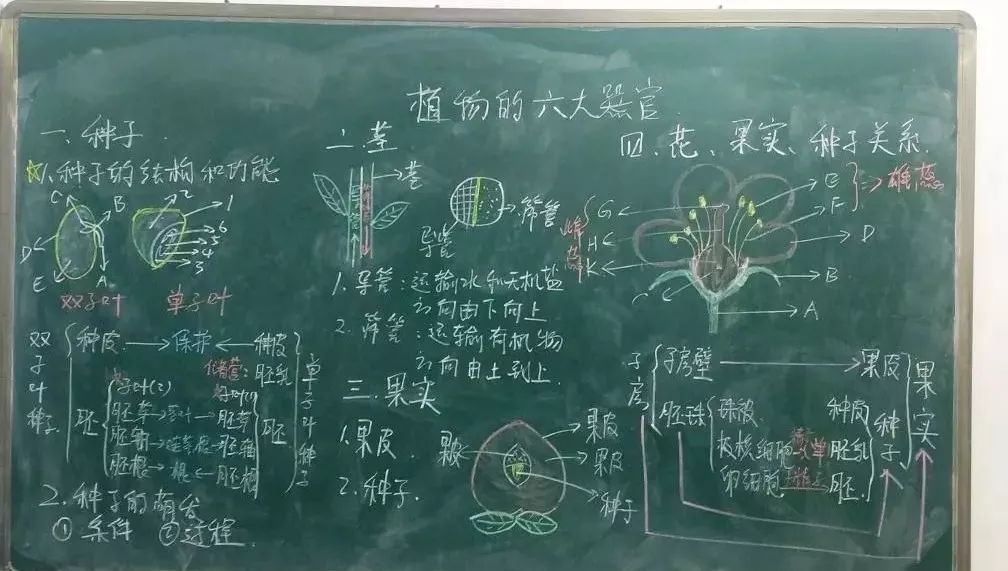 植物的六大器官
一、种子
☆1、种子的结构和功能
C B
D
E A
双子叶
2 1
6
5
4
3
单子叶
双子叶种子
种皮 → 保护 ← 种皮
胚乳
胚
子叶(2)
胚芽
胚轴
胚根 → 根 ← 胚根
胚芽
胚轴
胚
单子叶种子
2、种子的萌发
① 条件 ② 过程
二、茎
茎
筛管
导管
1、导管:运输水和无机盐
方向由下向上
2、筛管:运输有机物
方向由上到
三、果实
1、果皮
2、种子
果皮
果皮
种子
四、花、果实、种子关系
E
F
雄蕊
G
H
K
雌蕊
D
B
C
A
子房
子房壁 → 果皮
胚珠
珠被 种皮
极核细胞 胚乳
卵细胞 胚
种子
果实